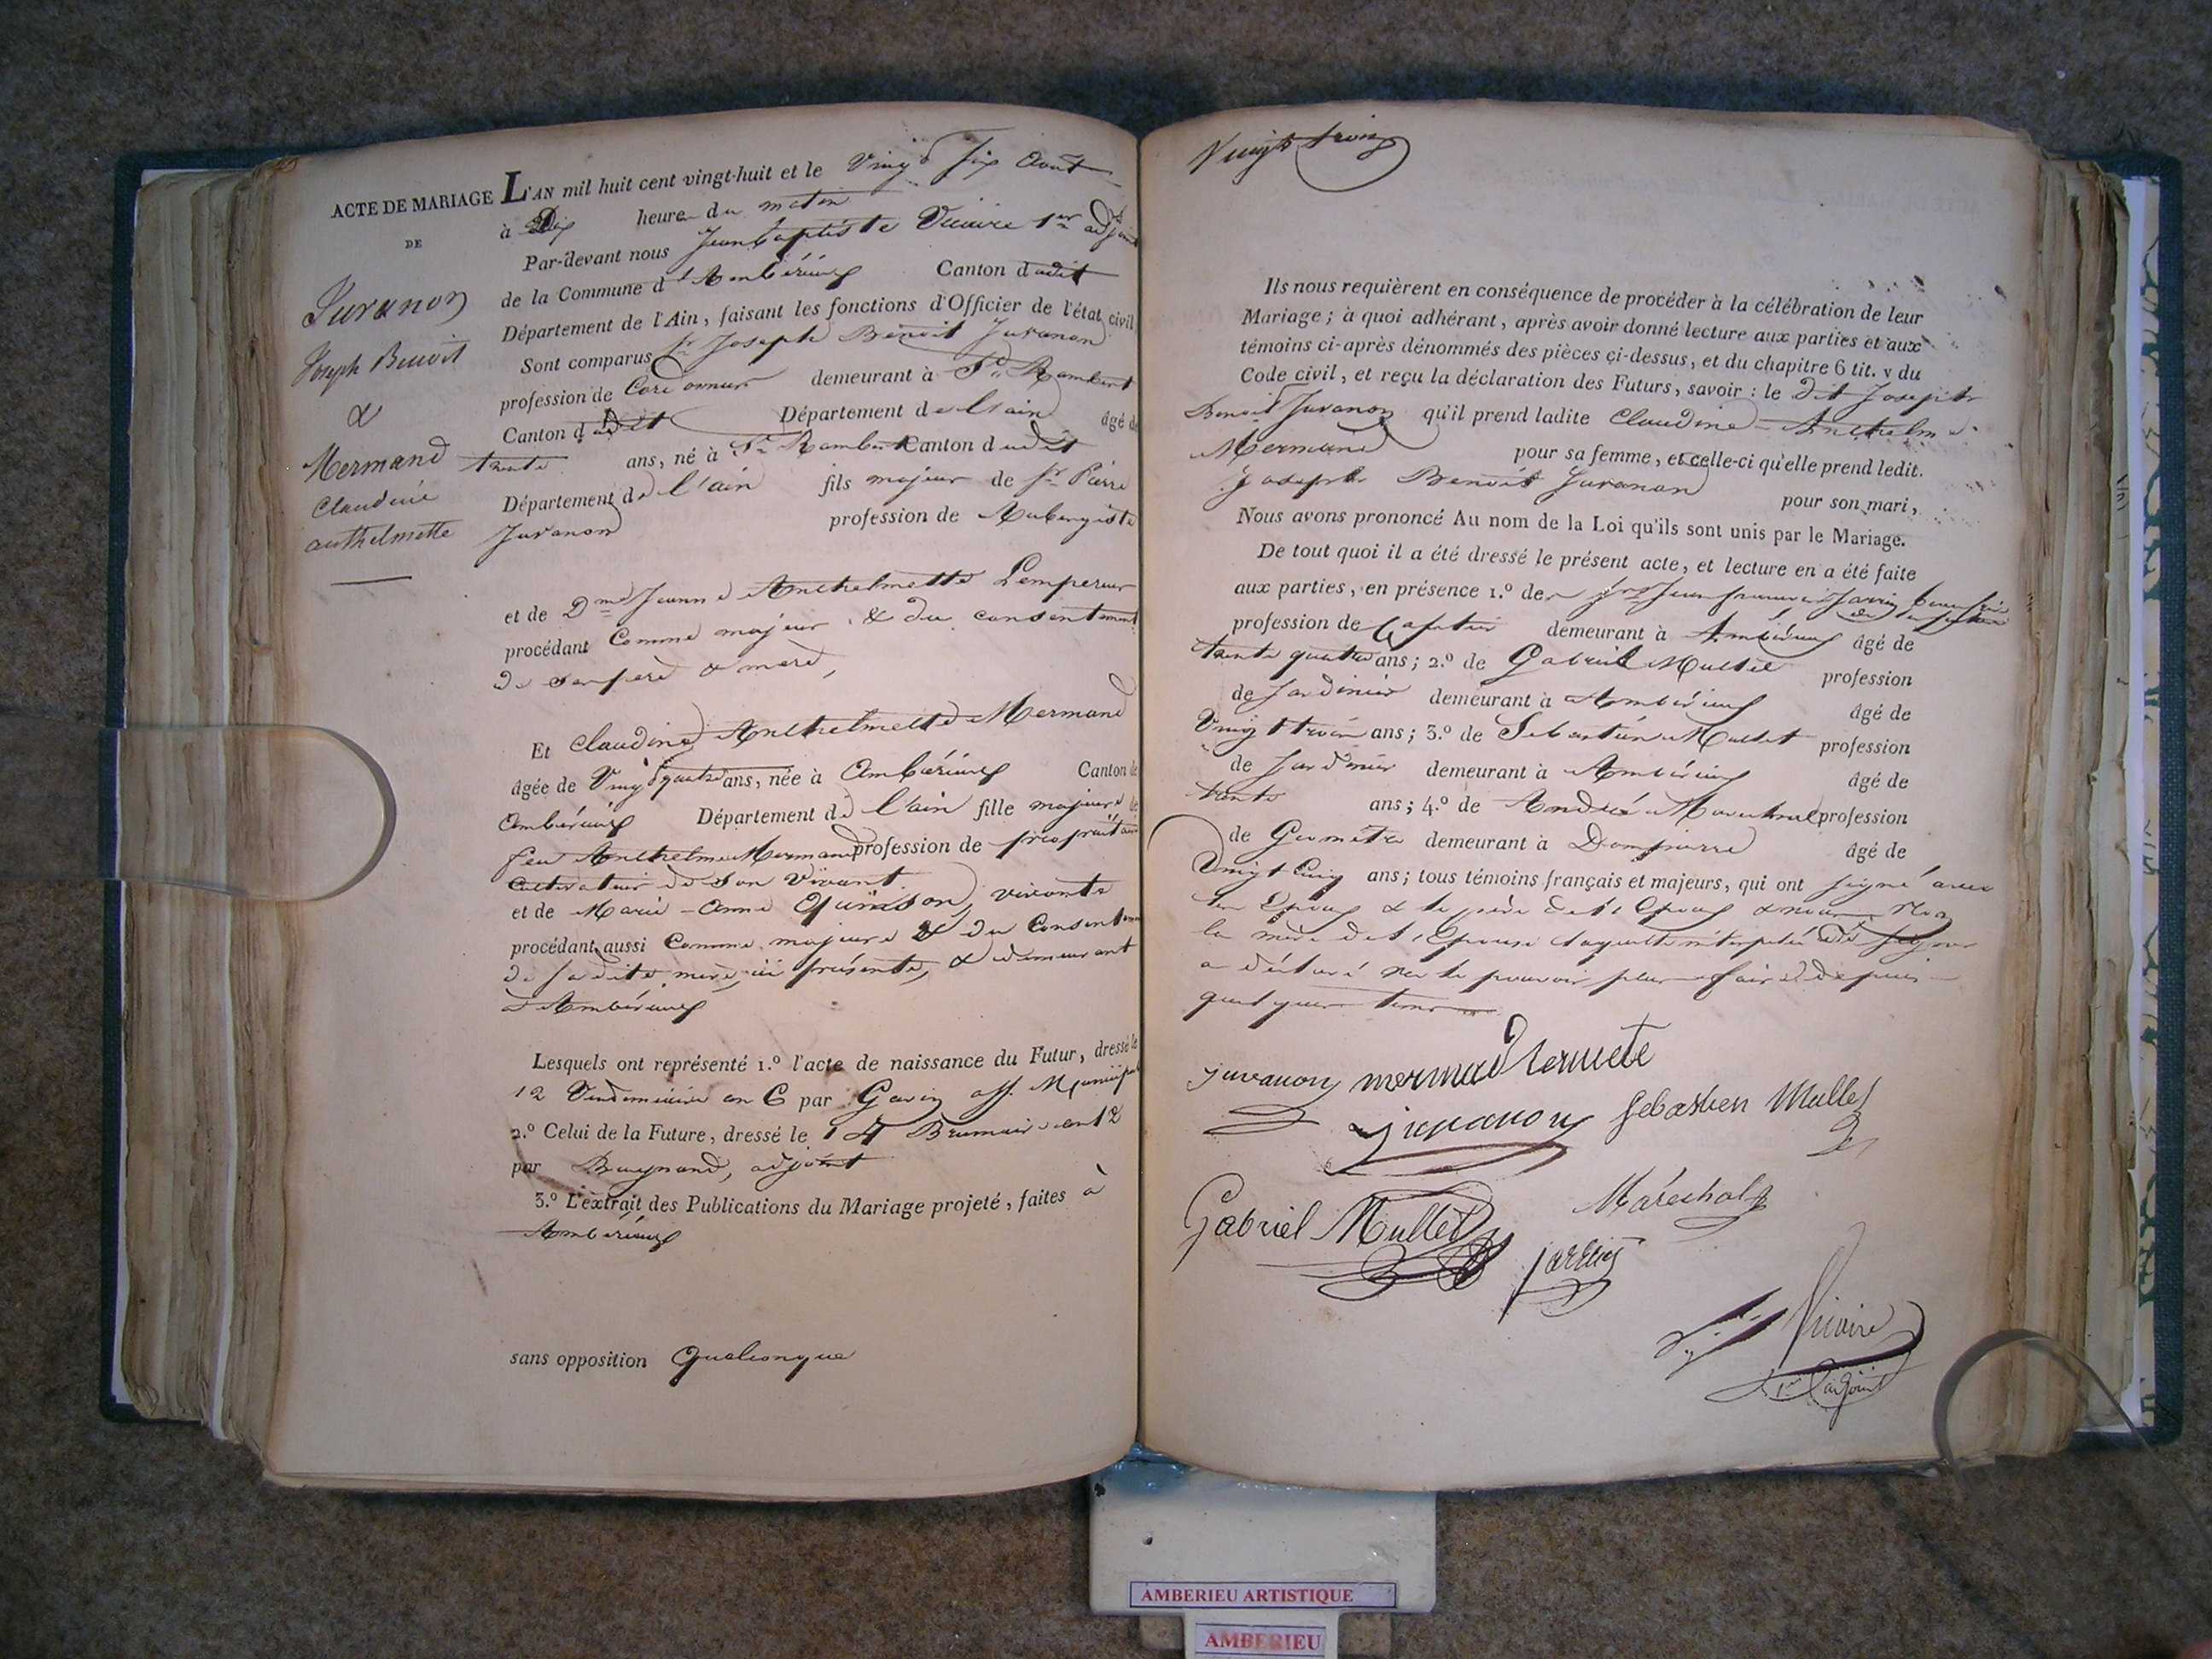 ACTE DE MARIAGE
DE
Juvanon
Joseph Benoit
&
Mermand
Claudine
anthelmette
L'AN mil huit cent vingt-huit et le Vingt Six Aout
à Dix heure du matin
Par-devant nous Jean baptiste Vicaire 1er adjoint
de la Commune d'Ambérieux Canton dudit
Département de l'Ain, faisant les fonctions d'Officier de l'état civil
Sont comparus Sr Joseph Benoit Juvanon
profession de Cordonnier demeurant à St Rambert
Canton dudit Département de l'ain âgé de
trente ans, né à St Rambert Canton dudit
Département de l'ain fils majeur de Sr Pierre
Juvanon profession de Aubergiste
et de Dme Jeanne Anthelmette Lempereur
procédant Comme majeur & du consentement
de Ses pere & mere,
Et Claudine Anthelmette Mermand
âgée de Vingt quatre ans, née à Ambérieux Canton de
Ambérieux Département de l'ain fille majeure de
feu Anthelme Mermand profession de propriétaire
Cultivateur de Son Vivant
et de Marie-Anne Quinson, vivante
procédant aussi Comme majeure & du Consentement
de Sa dite mere, ici présente, & demeurant
à Ambérieux
Lesquels ont représenté 1.º l'acte de naissance du Futur, dressé le
12 Vendemiaire an 6 par Gavin off. Municipal
2.º Celui de la Future, dressé le 14 Brumaire an 12
par Bugnand, adjoint
3.º L'extrait des Publications du Mariage projeté, faites à
Ambérieux
sans opposition Quelconque
Vingt trois
Ils nous requièrent en conséquence de procéder à la célébration de leur
Mariage; à quoi adhérant, après avoir donné lecture aux parties et aux
témoins ci-après dénommés des pièces çi-dessus, et du chapitre 6 tit. v du
Code civil, et reçu la déclaration des Futurs, savoir: le dit Joseph
Benoit Juvanon qu'il prend ladite Claudine-Anthelme
Mermand pour sa femme, et celle-ci qu'elle prend ledit.
Joseph Benoit Juvanon pour son mari,
Nous avons prononcé Au nom de la Loi qu'ils sont unis par le Mariage.
De tout quoi il a été dressé le présent acte, et lecture en a été faite
aux parties, en présence 1.º de Jean francois Jarrin
profession de demeurant à Ambérieux âgé de
trente quatre ans; 2.º de Gabriel Mullet profession
de Jardinier demeurant à Ambérieux âgé de
Vingt trois ans; 3.º de Sebastien Mullet profession
de Jardinier demeurant à Ambérieux âgé de
trente ans; 4.º de André Maréchal profession
de Géomètre demeurant à Dompierre âgé de
Vingt Cinq ans; tous témoins français et majeurs, qui ont Signé avec
les Epoux & le père de l'Epoux & nous, Non
la mère de l'Epouse laquelle interpellée de Signer
a déclaré ne le pouvoir plus faire depuis
quelques tems
juvanon mermad
juvanon Sebastien Mullet
Gabriel Mullet Maréchal
jarrin
Vicaire
1er adjoint
AMBERIEU ARTISTIQUE
AMBERIEU